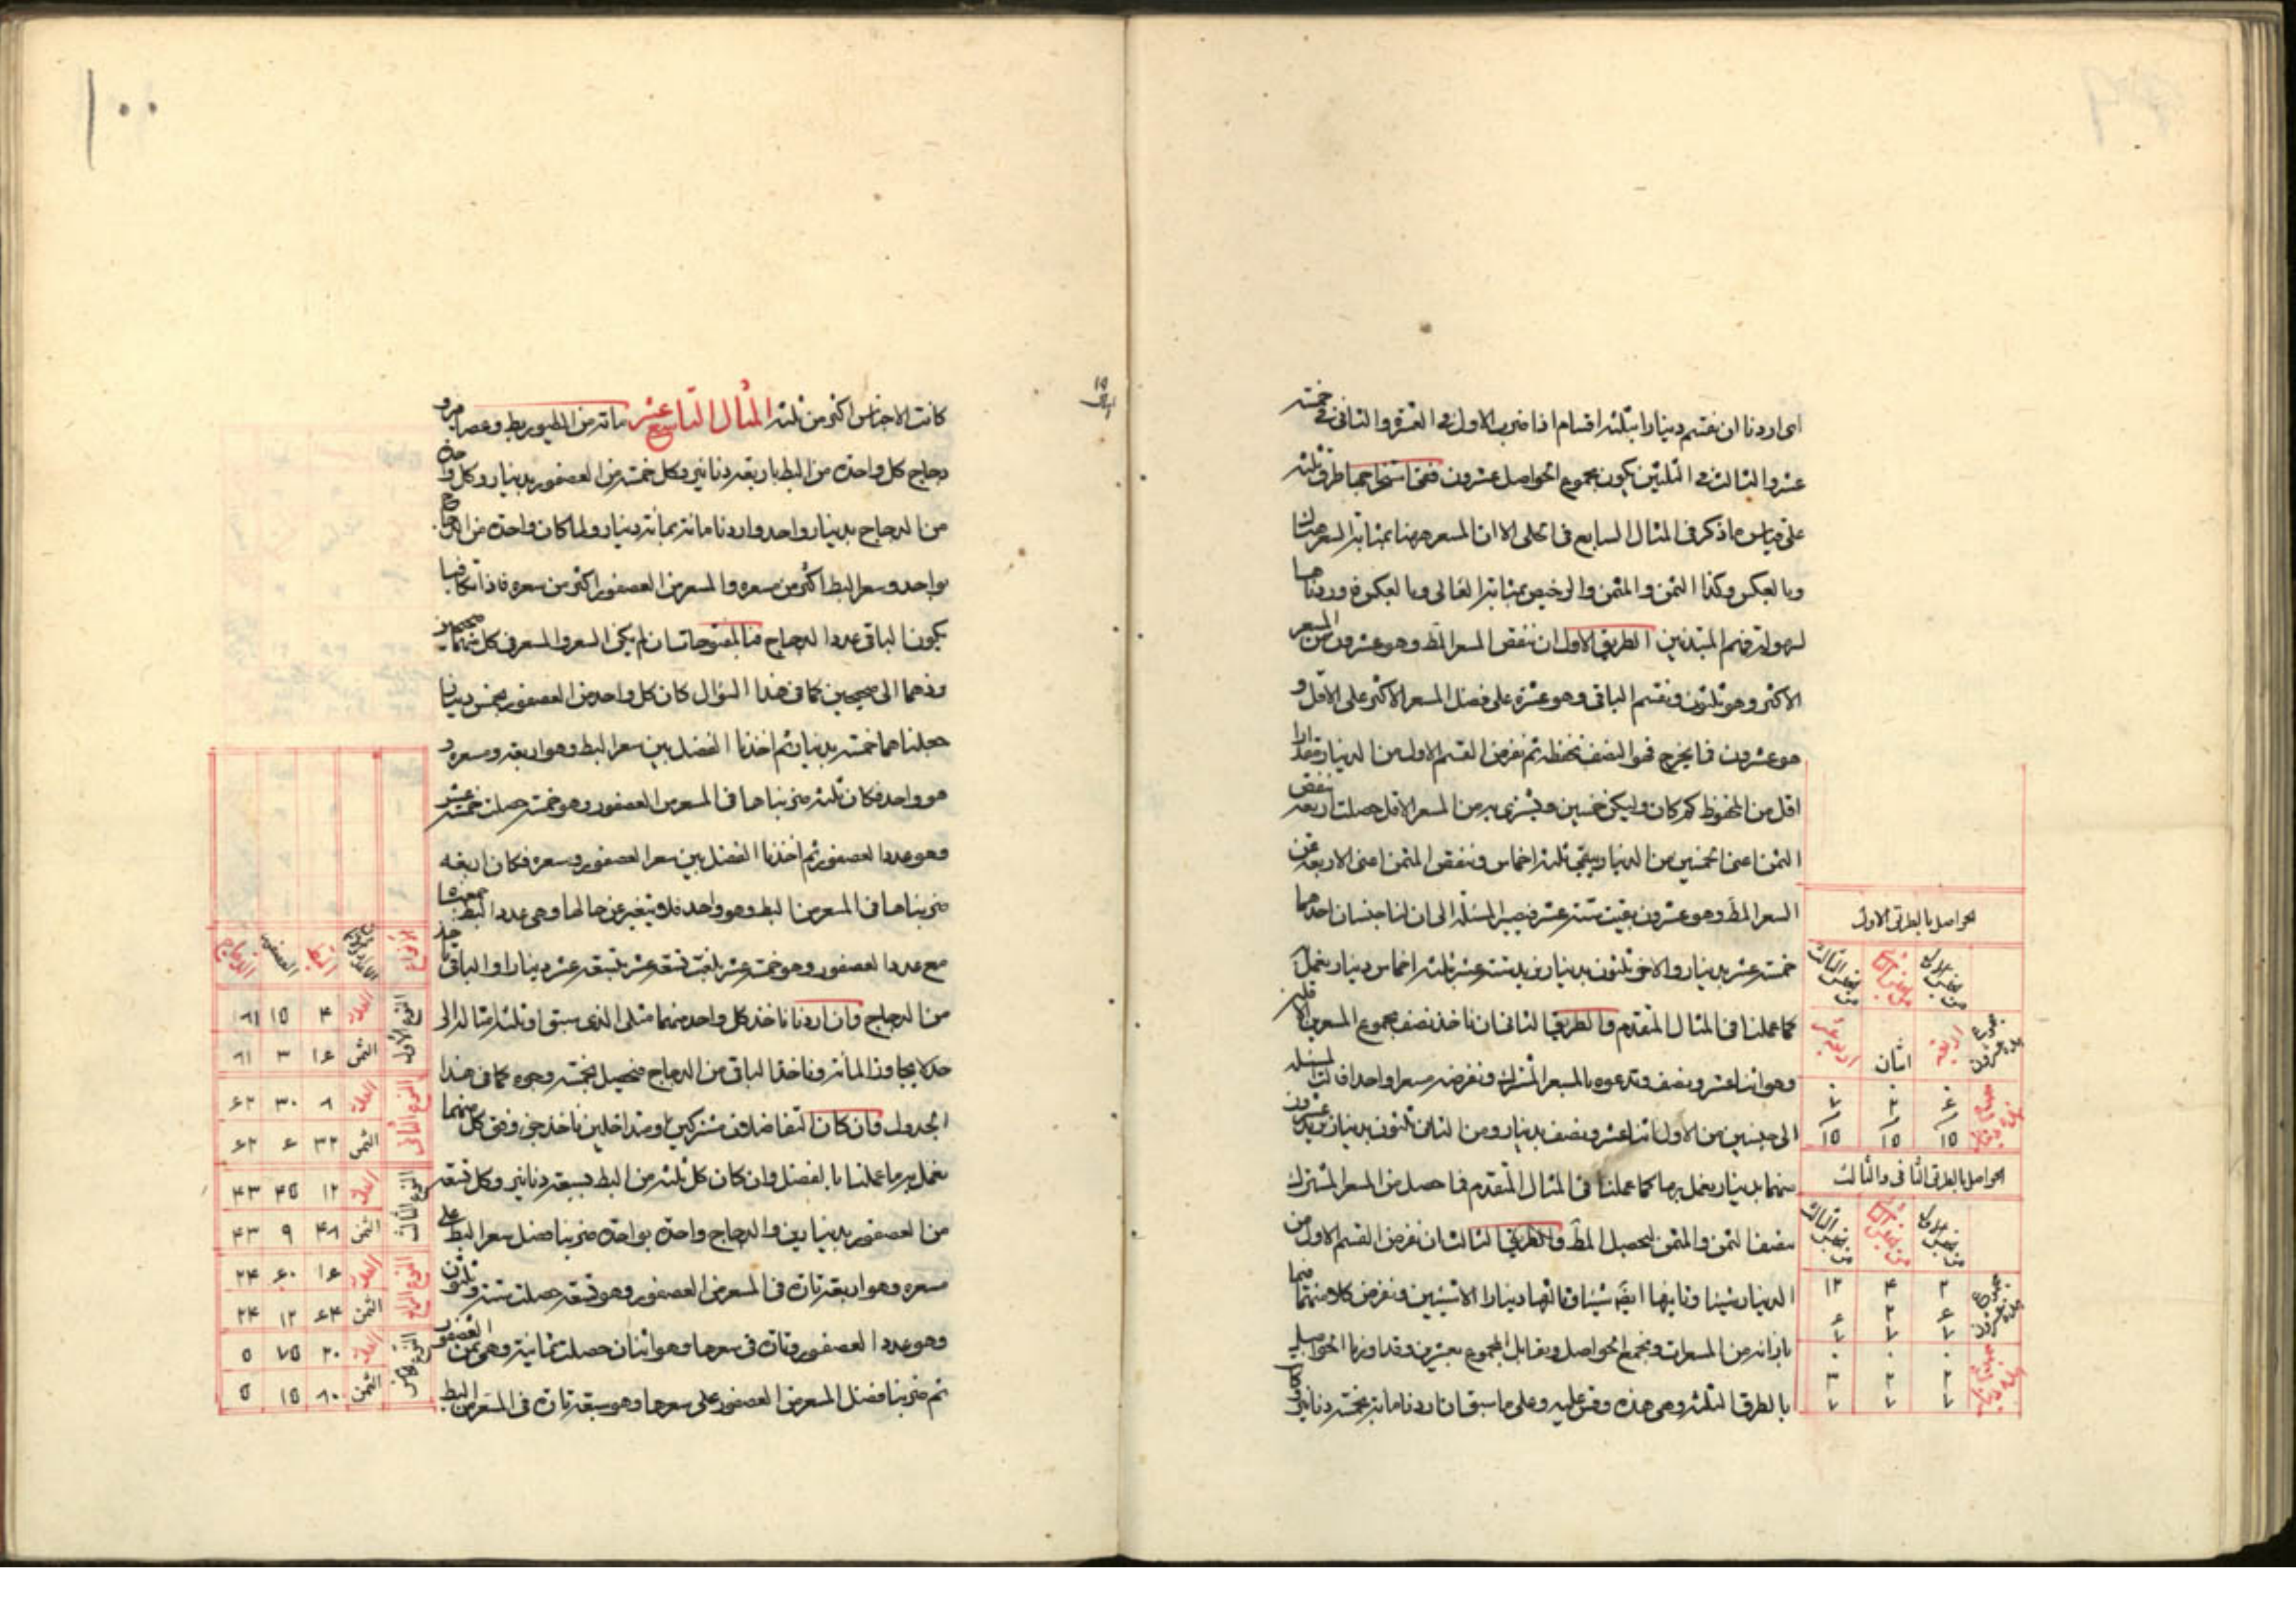 اى اردنا ان نقسم دينارا بثلثة اقسام اذا ضرب الاول فى العشرة والثانى فى خمسة
عشر والثالث فى الثلثين يكون مجموع الحواصل عشرون ففى استخراجها طرق ثلثة
على قياس ما ذكر فى المثال السابع فى كلى الا ان المسعر ههنا بمثابة السعر هناك
وبالعكس وكذا الثمن والمثمن والرخيص بمثابة الغالى وبالعكس
لسهولة فهم المبتدئين الطريق الاول ان ننقص السعر المط وهو عشرون من المسعر
الاكثر وهو ثلثون ونقسم الباقى وهو عشرة على فضل المسعر الاكثر على الاقل و
هو عشرون فما يخرج فهو النصف نحفظه ثم نفرض القسم الاول من الدينار مقدارا
اقل من المحفوظ كم كان وليكن خمسين ونشترى به من المسعر الاقل حصلت اربعة ننقص
الثمن اعنى الخمسين من الدينار يبقى ثلثة اخماس وننقص المثمن اعنى الاربعة عن
السعر المط وهو عشرون بقيت ستة عشر فيصير المسئلة الى ان لنا جنسان احدهما
خمسة عشر بدينار والاخر ثلثون بدينار ونريد ستة عشر بثلثة اخماس دينار نعمل
كما عملنا فى المثال المتقدم والطريق الثانى ان ناخذ نصف مجموع المسعرين الاقلين
وهو اثنا عشر ونصف وندعوه بالمسعر المشترك ونفرضه مسعرا واحدا فالت المسئلة
الى جنسين من الاول اثنا عشر ونصف بدينار ومن الثانى ثلثون بدينار نريد عشرون
منهما بدينار نعمل به ما كما عملنا فى المثال المتقدم فما حصل من المسعر المشترك
نصفنا الثمن والمثمن ليحصل المط والطريق الثالث ان نفرض القسم الاول من
الدينار شيئا وثانيها ايضا شيئا وثالثها دينارا الا شيئين ونفرض كلا منهما
بازائه من المسعرات ونجمع الحواصل ويقابل المجموع بعشرين وقد اوردنا الحواصل
بالطرق الثلثة وهى هذه وقس عليه وعلى ما سبق ان اردنا مائة بخمسة دنانير
الحواصل بالطريق الاول
من نصيب الاول
من نصيب الثانى
من نصيب الثالث
اربعة
اثنان
١٥ ١٥ ١٥
الحواصل بالطريق الثانى والثالث
من نصيب الاول
من نصيب الثانى
من نصيب الثالث
١٠٠
كانت الاجناس اكثر من ثلثة المثال التاسع عشر مائة من الطيور بط وعصافير و
دجاج كل واحدة من البط باربعة دنانير وكل خمسة من العصفور بدينار وكل واحدة
من الدجاج بدينار واحد واردنا مائة بمائة دينار ولما كان واحدة من الدجاج
بواحد وسعر البط اكثر من مسعره والمسعر من العصفور اكثر من سعره فاذا تكافيا
يكون الباقى عدد الدجاج فى المفتوحات ان لم يكن السعر والمسعر فى كل منهما صحيحين
رددناهما الى صحيحين كما فى هذا السؤال كان كل واحد من العصفور بخمس دينار
جعلناهما خمسة بدينار ثم اخذنا الفضل بين سعر البط وهو اربعة ومسعره و
هو واحد فكان ثلثة ضربناها فى المسعر من العصفور وهو خمسة حصلت خمسة عشر
وهو عدد العصفور ثم اخذنا الفضل بين سعر العصفور ومسعره فكان اربعة
ضربناها فى المسعر من البط وهو واحد فلا يتغير عن حالها وهى عدد البط جمعناها
مع عدد العصفور وهو خمسة عشر بلغت تسعة عشر بتسعة عشر دينارا والباقى
من الدجاج وان اردنا ناخذ كل واحد منهما مثلى الذى سبق او ثلثة امثاله الى
حد لا يجاوز المائة وناخذ الباقى من الدجاج فيحصل بخمسة وجوه كما فى هذا
الجدول وان كان التفاضلان مشتركين او متداخلين ناخذ جزء وفق كل منهما
نعمل به ما عملنا بالفضل وان كان كل ثلثة من البط بسبعة دنانير وكل تسعة
من العصفور بدينارين والدجاج واحدة بواحدة ضربنا فضل سعر البط على
مسعره وهو اربعة تارة فى المسعر من العصفور وهو تسعة حصلت ستة وثلثون
وهو عدد العصفور وتارة فى سعرها وهو اثنان حصلت ثمانية وهى ثمن العصفور
ثم ضربنا فضل المسعر من العصفور على سعرها وهو سبعة تارة فى المسعر من البط
الانواع البط العصفور الدجاج
النوع الاول العدد ۴ ١٥ ٨١
الثمن ١۶ ٣ ٨١
النوع الثانى العدد ٨ ٣٠ ۶٢
الثمن ٣٢ ۶ ۶٢
النوع الثالث العدد ١٢ ۴٥ ۴٣
الثمن ۴٨ ٩ ۴٣
النوع الرابع العدد ١۶ ۶٠ ٢۴
الثمن ۶۴ ١٢ ٢۴
النوع الخامس العدد ٢٠ ٧٥ ٥
الثمن ٨٠ ١٥ ٥